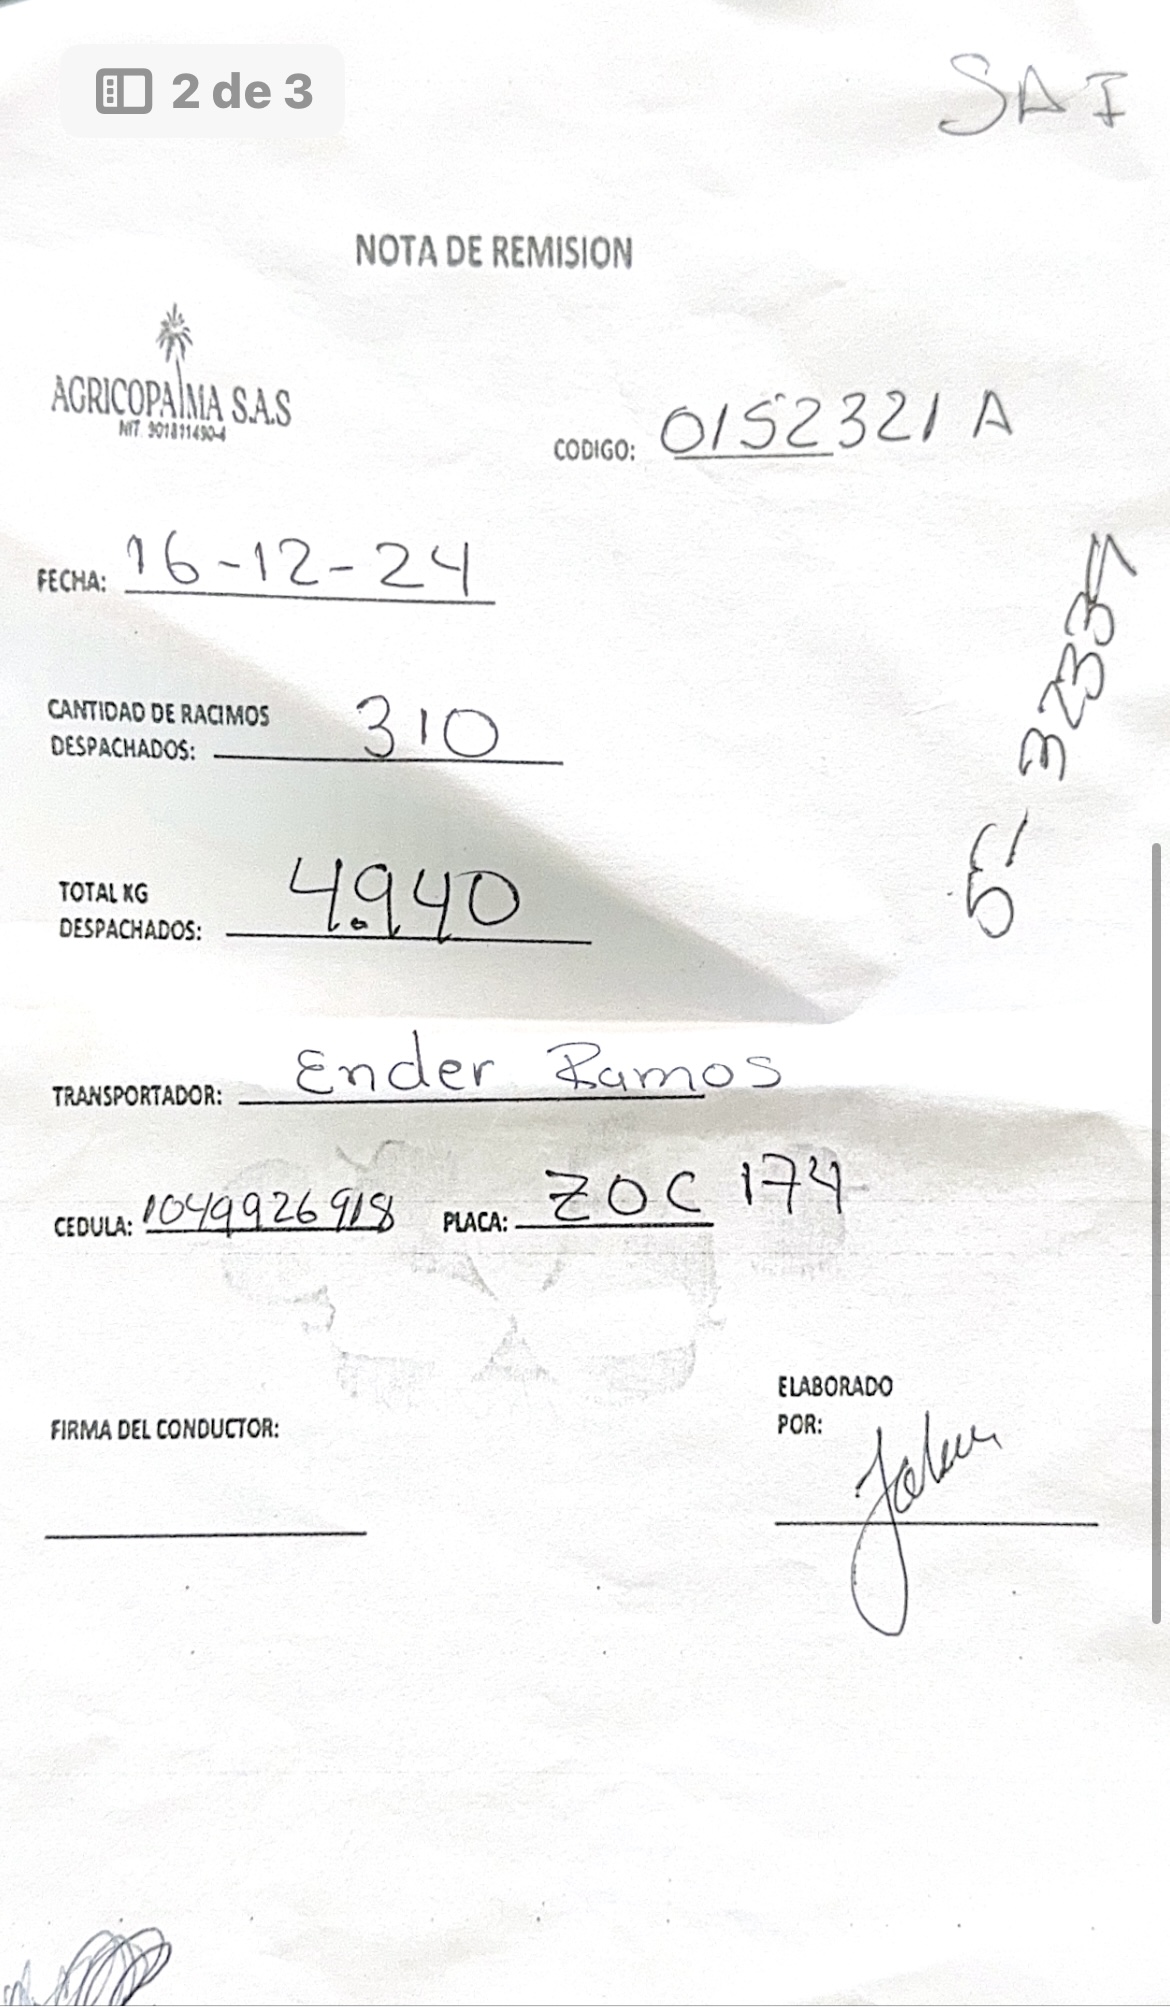 2 de 3
SAI
NOTA DE REMISION
AGRICOPALMA S.A.S
NIT. 901811490-4
CODIGO: 0152321 A
FECHA: 16-12-24
CANTIDAD DE RACIMOS
DESPACHADOS: 310
TOTAL KG
DESPACHADOS: 4.940
TRANSPORTADOR: Ender Ramos
CEDULA: 1049926918 PLACA: ZOC 174
FIRMA DEL CONDUCTOR:
ELABORADO
POR: